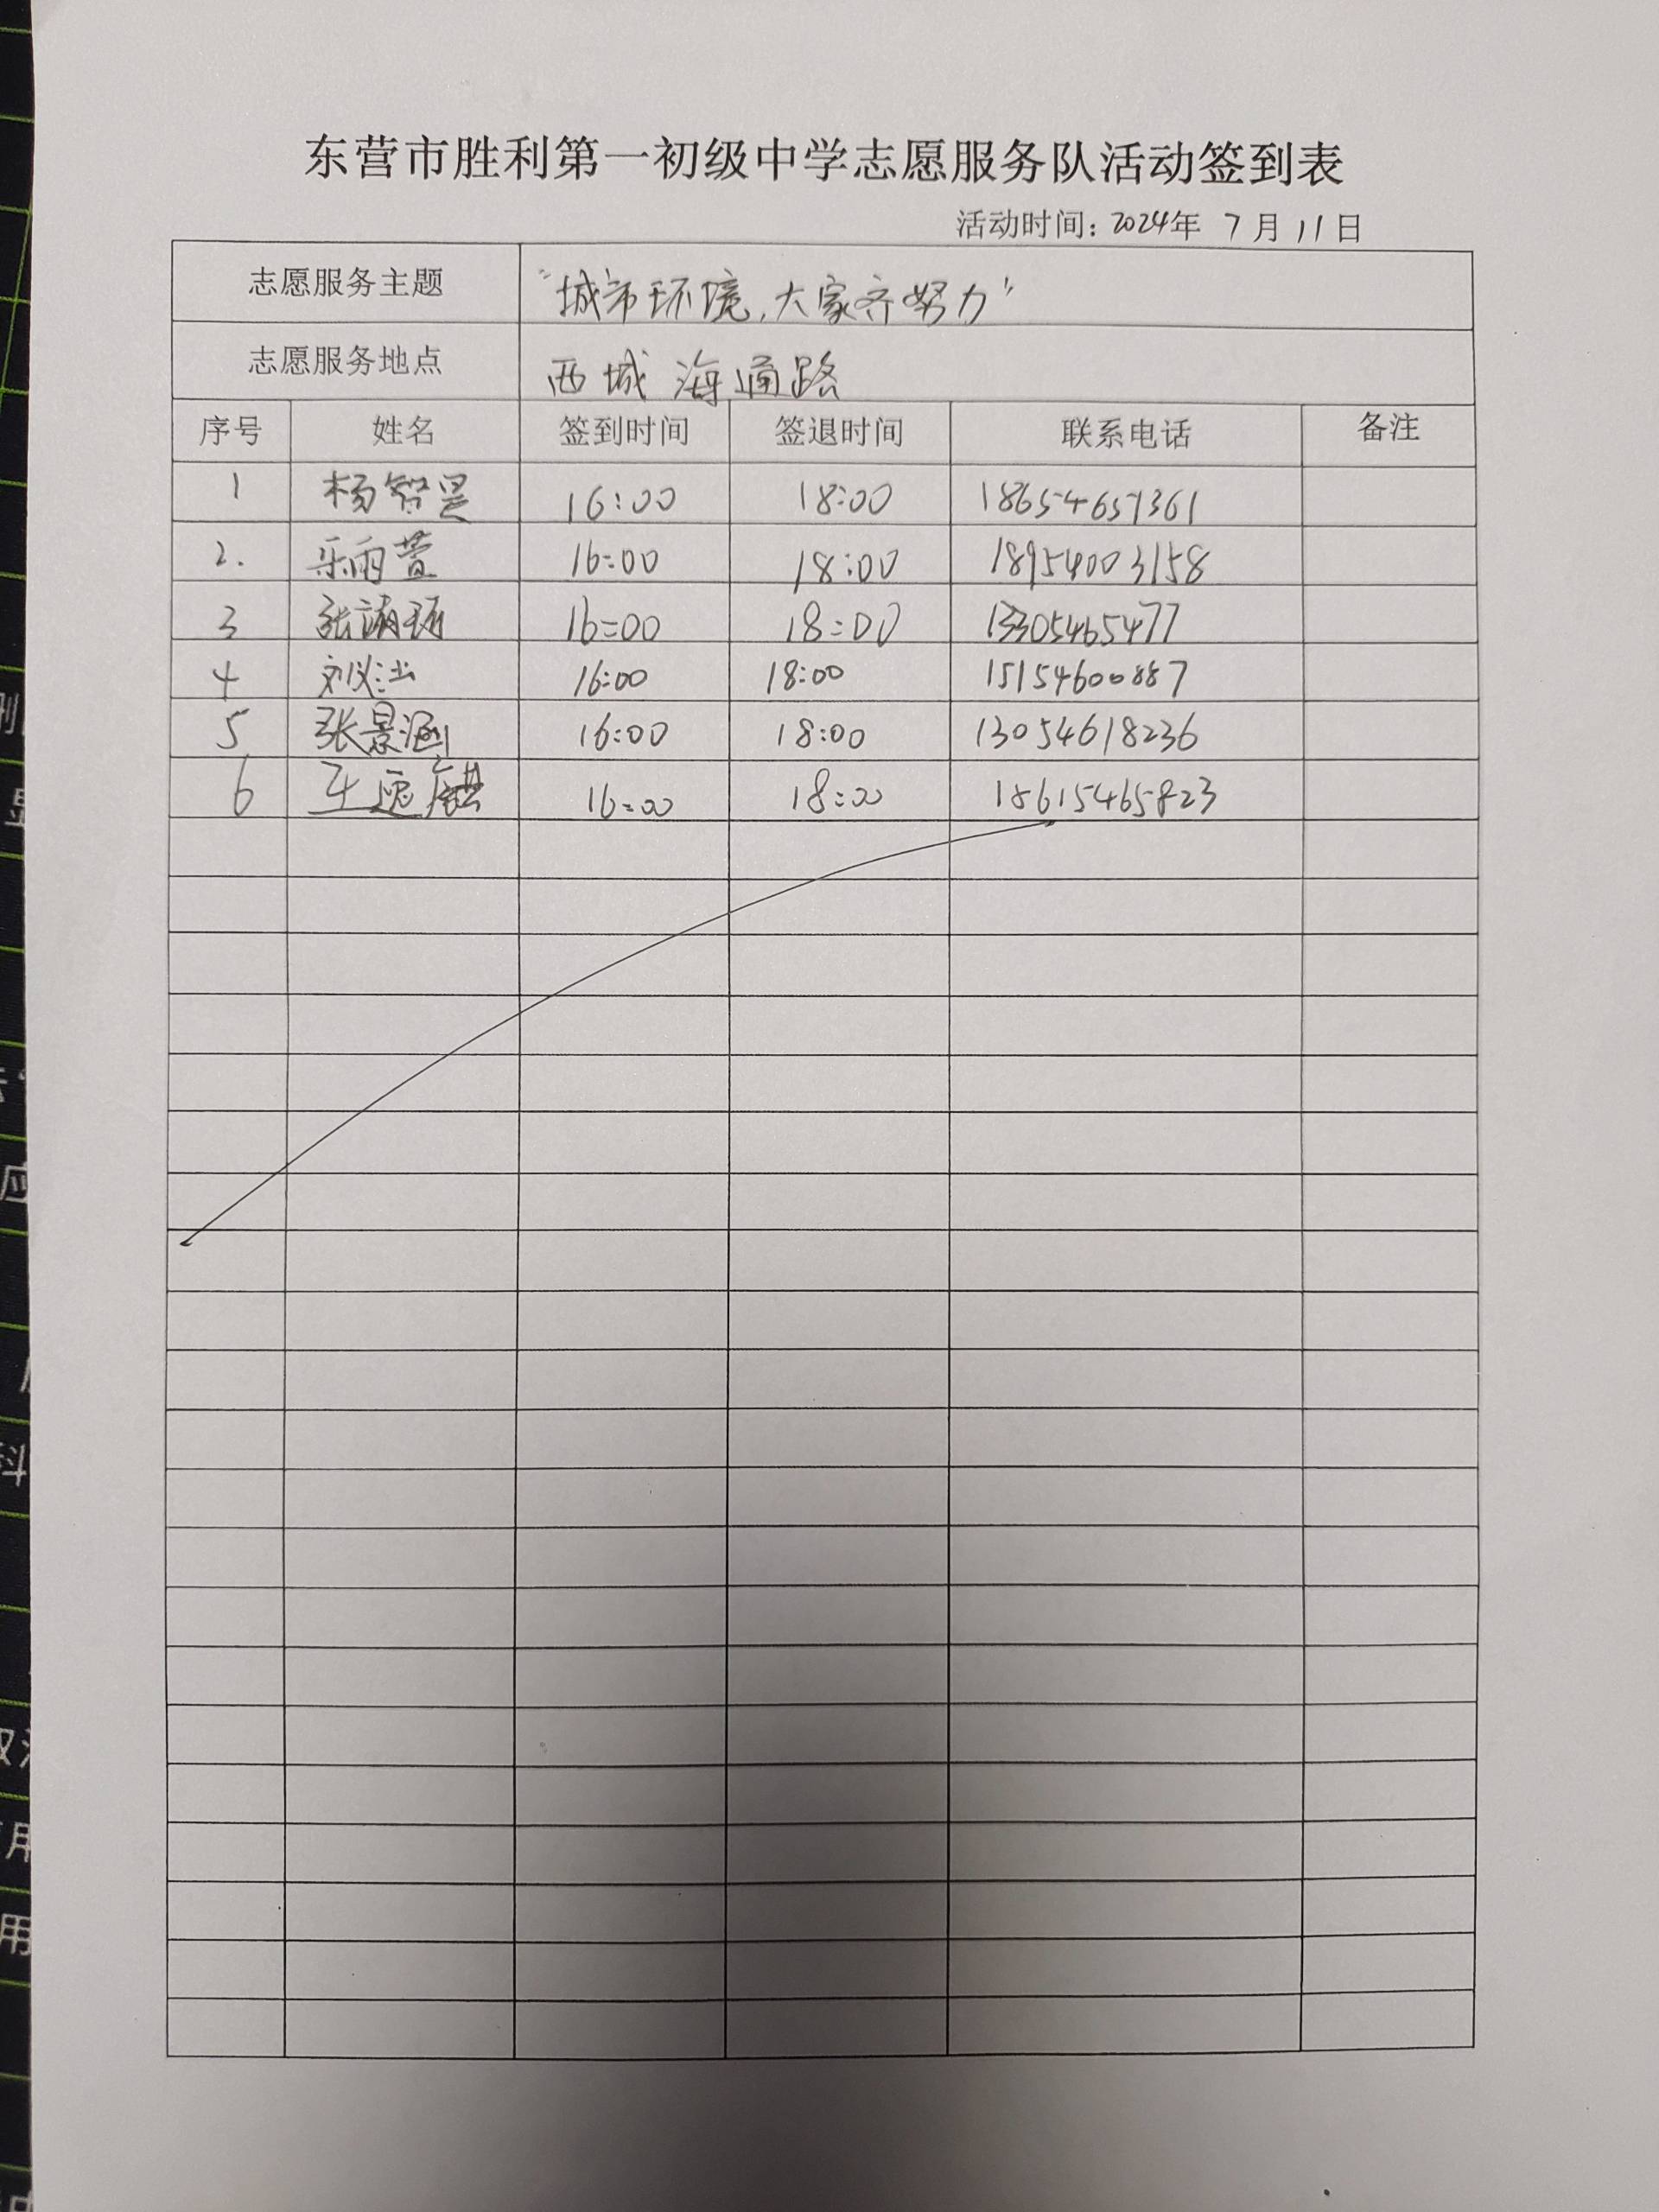 东营市胜利第一初级中学志愿服务队活动签到表
活动时间: 2024年 7月 11日
志愿服务主题 "城市环境,大家齐努力"
志愿服务地点 西城 海通路
序号 姓名 签到时间 签退时间 联系电话 备注
1 杨智昊 16:00 18:00 18654657361
2. 乐雨萱 16:00 18:00 18954003158
3 张 16:00 18:00 13305465477
4 刘 16:00 18:00 15154600887
5 张景涵 16:00 18:00 13054618236
6 16:00 18:00 18615465823